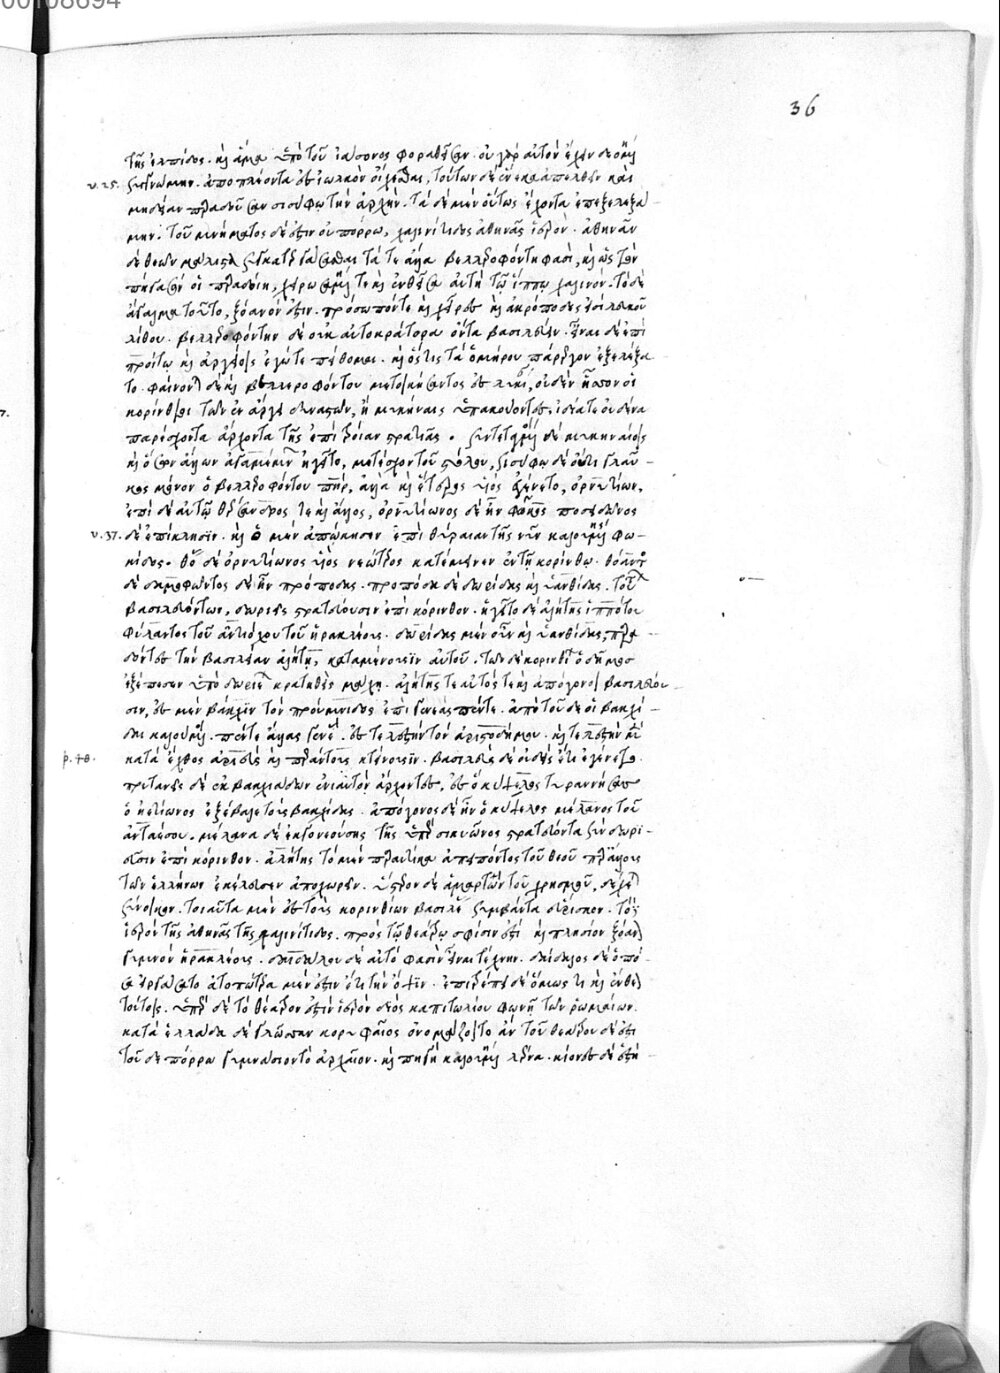 τῆς ἐλπίδος. καὶ ἅμα ὑπὸ τοῦ ἰάσονος φοραθεῖσαν. οὐ γὰρ αὐτὸν ἔχειν δεομένη
υ.25. συγγνώμην. ἀποπλέοντα ἐς ἰωλκὸν οἴχεσθαι, τούτων δὲ ἕνεκα ἀπελθεῖν καὶ
μηδείαν παραδοῦσαν σισύφω τὴν ἀρχήν. τά δε μὲν οὕτως ἔχοντα ἐπεξελεξά
μην. τοῦ μνήματος δέ ἐστιν οὐ πόρρω, χαλινίτιδος ἀθηνᾶς ἱερὸν. ἀθηνᾶν
δὲ θεῶν μάλιστα συγκατεργάσασθαι τά τε ἄλλα βελλεροφόντη φασὶ, καὶ ὡς τὸν
πήγασόν οἱ παραδοίη, χειρωσαμένη τε καὶ ἐνθεῖσα αὐτὴ τῶ ἵππω χαλινόν. τὸ δὲ
ἄγαλμα τοῦτο, ξόανόν ἐστιν. πρόσωπόν τε καὶ χεῖρες καὶ ἀκρόποδες εἰσὶ λευκοῦ
λίθου. βελλεροφόντην δὲ οὐκ αὐτοκράτορα ὄντα βασιλεύειν. εἶναι δὲ ἐπὶ
προίτω καὶ ἀργείοις ἐγώ τε πείθομαι. καὶ ὅστις τὰ ὁμήρου πάρεργον ἐξελέξα
το. φαίνονται δὲ καὶ βελλεροφόντου μετοικήσαντος ἐς λυκίαν, οὐδὲν ἧττον οἱ
κορίνθιοι τῶν ἐν ἄργει δυναστῶν, ἢ μυκήναις ὑπακούοντες. ἰδία τε οὐδένα
παρέσχοντα ἄρχοντα τῆς ἐπὶ τροίαν στρατιᾶς. συντεταγμένοι δὲ μυκηναίοις
καὶ ὅσων ἄλλων ἀγαμέμνων ἡγεῖτο, μετέσχον τοῦ στόλου, σισύφω δὲ οὔτι γλαῦ
κος μόνον ὁ βελλεροφόντου πατὴρ, ἀλλὰ καὶ ἕτερος υἱὸς ἐγένετο, ὀρνυτίων.
ἐπὶ δὲ αὐτῶ θέρσανδρος τε καὶ ἄλμος, ὀρνυτίωνος δὲ ἦν φῶκος ποσειδῶνος
υ.37. δὲ ἐπίκλησιν. καὶ ὁ μὲν ἀπώκησεν ἐπὶ θύραιαν τῆς νῦν καλουμένης φω
κίδος. θόας δὲ ὀρνυτίωνος υἱὸς νεώτερος κατέμεινεν ἐν τῆ κορίνθω. θόαντος
δὲ δημοφῶντος δὲ ἦν πρόποδας. προπόδα δὲ δωρίδας καὶ ὑανθίδας. τούτων
βασιλευόντων, δωριεῖς στρατεύουσιν ἐπὶ κόρινθον. ἡγεῖτο δὲ ἀλήτης ἱππότου
φύλαντος τοῦ ἀντιόχου τοῦ ἡρακλέους. δωρίδας μὲν οὖν καὶ ὑανθίδας, παρα
δόντες τὴν βασιλείαν ἀλήτη, καταμένουσιν αὐτοῦ. τῶν δὲ κορινθίων ὁ δῆμος
ἐξέπεσεν ὑπὸ δωριέων κρατηθεὶς μάχη. ἀλήτης τε αὐτός τε καὶ ἀπόγονοι βασιλεύου
σιν, ἐς μὲν βάκχιν τὸν προύμνιδος ἐπὶ γενεὰς πέντε. ἀπὸ τοῦ δὲ οἱ βακχί
δαι καλούμενοι. πέντε ἄλλας γενεὰς. ἐς τελέστην τὸν ἀριστοδήμου. καὶ τελέστην μὲν
ρ.48. κατὰ ἔχθος ἀριεὺς καὶ περάντας κτείνουσιν. βασιλεὺς δὲ οὐδεὶς ἔτι ἐγένετο.
πρυτάνεις δὲ ἐκ βακχιαδῶν ἐνιαυτὸν ἄρχοντες. ἐς ὃ κύψελος τυραννήσας
ὁ ἠετίωνος ἐξέβαλε τοὺς βακχίδας. ἀπόγονος δὲ ἦν ὁ κύψελος μέλανος τοῦ
ἀντάσου. μέλανα δὲ ἐκ γονούσης τῆς ὑπὲρ σικυῶνος στρατεύοντα σὺν δωρι
εῦσιν ἐπὶ κόρινθον. ἀλήτης τὸ μὲν παραυτίκα ἀπειπόντος τοῦ θεοῦ παρ' ἄλλους
τῶν ἑλλήνων ἐκέλευσεν ἀποχωρεῖν. ὕστερον δὲ ἁμαρτὼν τοῦ χρησμοῦ, δέχεται
σύνοικον. τοιαῦτα μὲν ἐς τοὺς κορινθίων βασιλεῖς συμβάντα εὕρισκον. τὸ δὲ
ἱερὸν τῆς ἀθηνᾶς τῆς χαλινίτιδος. πρὸς τῶ θεάτρω σφίσιν ἐστὶ καὶ πλησίον ξόανον
γυμνὸν ἡρακλέους. δαιδάλου δὲ αὐτό φασὶν εἶναι τέχνην. δαίδαλος δὲ ὁπό
σα εἰργάσατο ἀτοπώτερα μέν ἐστιν ἔτι τὴν ὄψιν. ἐπιπρέπει δὲ ὅμως τι καὶ ἔνθεον
τούτοις. ὑπὲρ δὲ τὸ θέατρον ἐστὶν ἱερὸν διὸς καπιτωλίου φωνῆ τῶν ῥωμαίων.
κατὰ ἑλλάδα δὲ γλῶσσαν κορυφαῖος ὀνομάζοιτο ἂν τοῦ θεάτρου δέ ἐστι
τοῦ δὲ πόρρω γυμνάσιον τὸ ἀρχαῖον. καὶ πηγὴ καλουμένη λέρνα. κίονες δὲ ἑστή
36